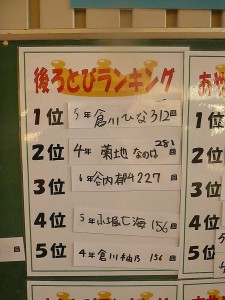 後ろとびランキング
1位 5年 倉川ひな 312 回
2位 4年 菊地 なのは 281 回
3位 6年 谷内 都 4227 回
4位 5年 小堀七海 156 回
5位 4年 倉川柚乃 156 回
あや
1位
2位
3位
4位
5位
回